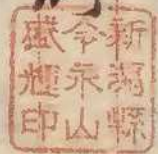 新潟縣
令永山
盛輝印